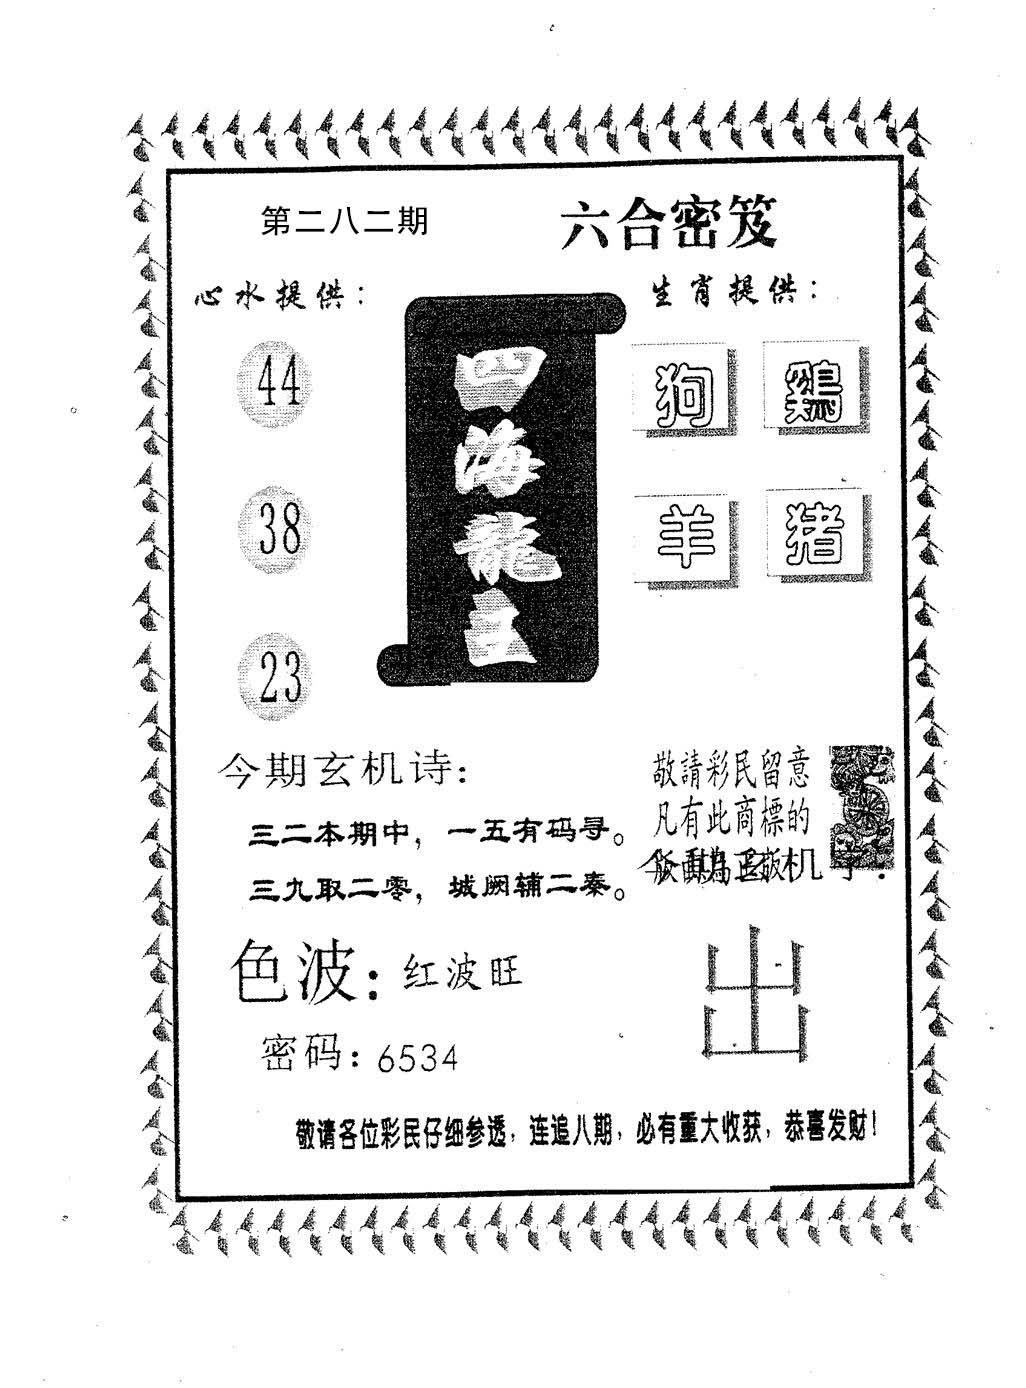 第二八二期
六合密笈
心水提供：
生肖提供：
44
38
23
四海龍王
狗 鷄
羊 猪
今期玄机诗：
三二本期中，一五有码寻。
三九取二零，城阙辅二秦。
敬請彩民留意
凡有此商標的
色波：红波旺
密码：6534
出
敬请各位彩民仔细参透，连追八期，必有重大收获，恭喜发财！